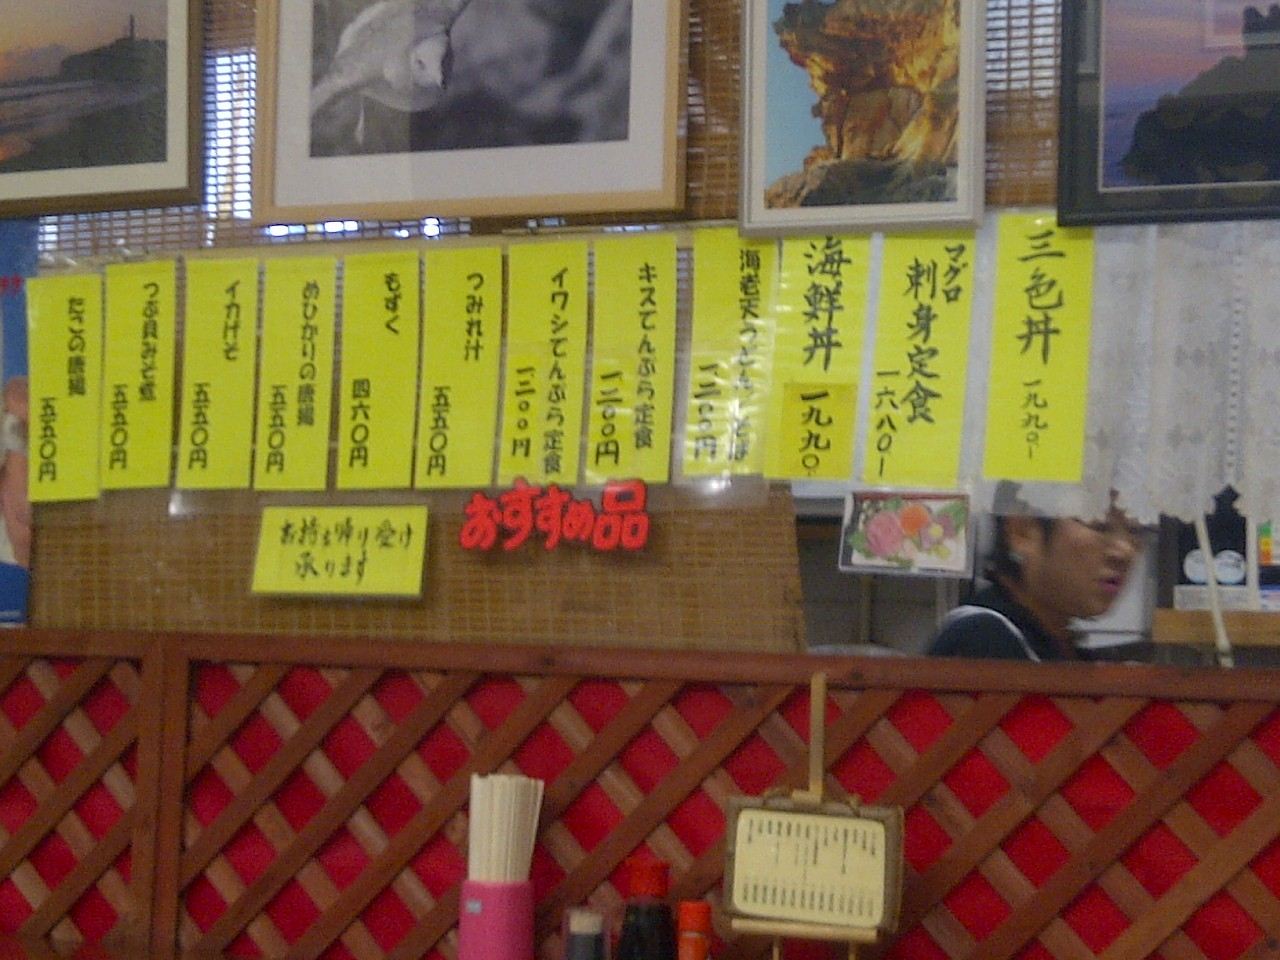 三色丼 一九九〇ー
マグロ
刺身定食
一六八八〇ー
海鮮丼 一九九〇
海老天うどん
一二〇〇円
キスてんぷら定食
一二〇〇円
イワシてんぷら定食
一二〇〇円
つみれ汁
五五〇円
もずく
四六〇円
めひかりの唐揚
五五〇円
イカげそ
五五〇円
つぶ貝みそ煮
五五〇円
たこの唐揚
五五〇円
おすすめ品
お持ち帰り受け
承ります